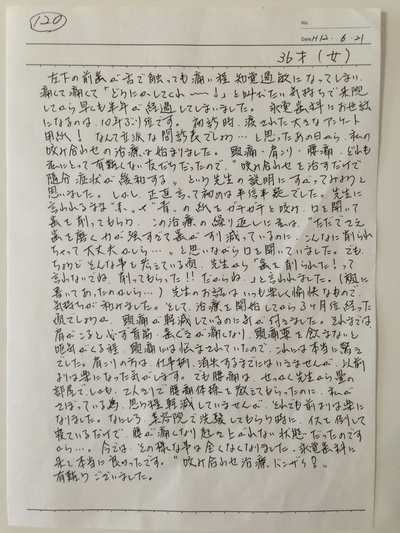 120
No.
Date H12・6・21
36才(女)
左下の前歯が舌で触っても痛い程 知覚過敏になってしまい、
痛くて痛くて「どうにかしてくれ〜〜!」と叫びたい気持ちで来院
してから早くも半年が経過してしまいました。永電歯科にお世話
になるのは、10年ぶり位です。初診時、渡された大きなアンケート
用紙!なんて立派な問診表でしょう…と思ったあの日から、私の
咬み合わせの治療は始まりました。頭痛・肩こり・腰痛、どれも
私にとって有難くない友だちだったので、"咬み合わせを治すだけで
随分症状が緩和する。"という先生の説明にすがってみようと
思いました。しかし、正直言って初めは半信半疑でした。先生に
言われるまま"赤"や"青"の紙をガチガチと咬み、口を開いて
歯を削ってもらう。この治療の繰り返しに私は、"ただでさえ
歯を磨く力が強すぎて歯がすり減っているのに、こんなに削られ
ちゃって大丈夫かしら…。"と思いながら口を開いていました。でも、
ちょうどそんな事を伝えている頃、先生から「歯を削られた!って
言わないでね、削ってもらった!!だからね。」と言われました。(顔に
書いてあったのかしら…)先生のお話はいつも楽しく愉快なもので、
気持ちが和みました。そして、治療を開始してから3ヶ月位経った
頃でしょうか、頭痛が軽減しているのに気が付きました。それまでは
肩がこると必ず首筋、歯ぐきが痛くなり、頭痛薬を飲まないと
吐気がくる程、頭痛には悩まされていたので、これには本当に驚き
でした。肩こりの方は、仕事柄、消失するまでにはいきませんが、以前
よりは楽になった気がします。でも腰痛は、せっかく先生から奥の
部屋で、しかも、2人きりで腰痛体操を教えてもらったのに、私が
さぼっている為、思う程軽減していませんが、それでも前よりは楽に
なりました。なにしろ、来院して洗髪してもらう時に、イスを倒して
寝ているだけで、腰が痛くなり起き上がれない状態だったのです
から…。今では、その様な事は全くなくなりました。永電歯科に
来て本当に良かったです。"咬み合わせ治療、バンザイ!"
有難うございました。